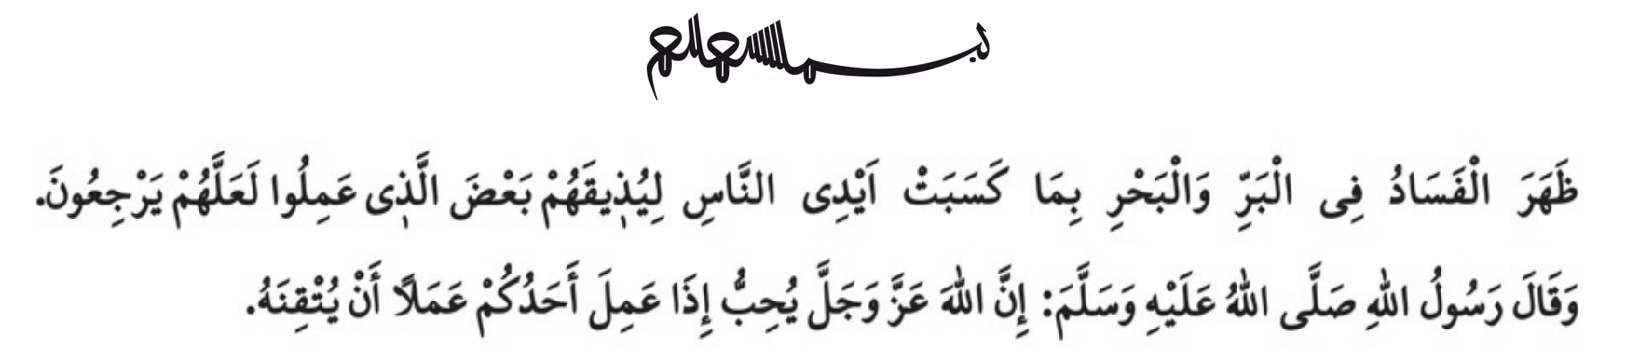 بسم الله الرحمن الرحيم
ظَهَرَ الْفَسَادُ فِى الْبَرِّ وَالْبَحْرِ بِمَا كَسَبَتْ اَيْدِى النَّاسِ لِيُذ۪يقَهُمْ بَعْضَ الَّذ۪ى عَمِلُوا لَعَلَّهُمْ يَرْجِعُونَ.
وَقَالَ رَسُولُ اللهِ صَلَّى اللهُ عَلَيْهِ وَسَلَّمَ: إِنَّ اللهَ عَزَّ وَجَلَّ يُحِبُّ إِذَا عَمِلَ أَحَدُكُمْ عَمَلًا أَنْ يُتْقِنَهُ.